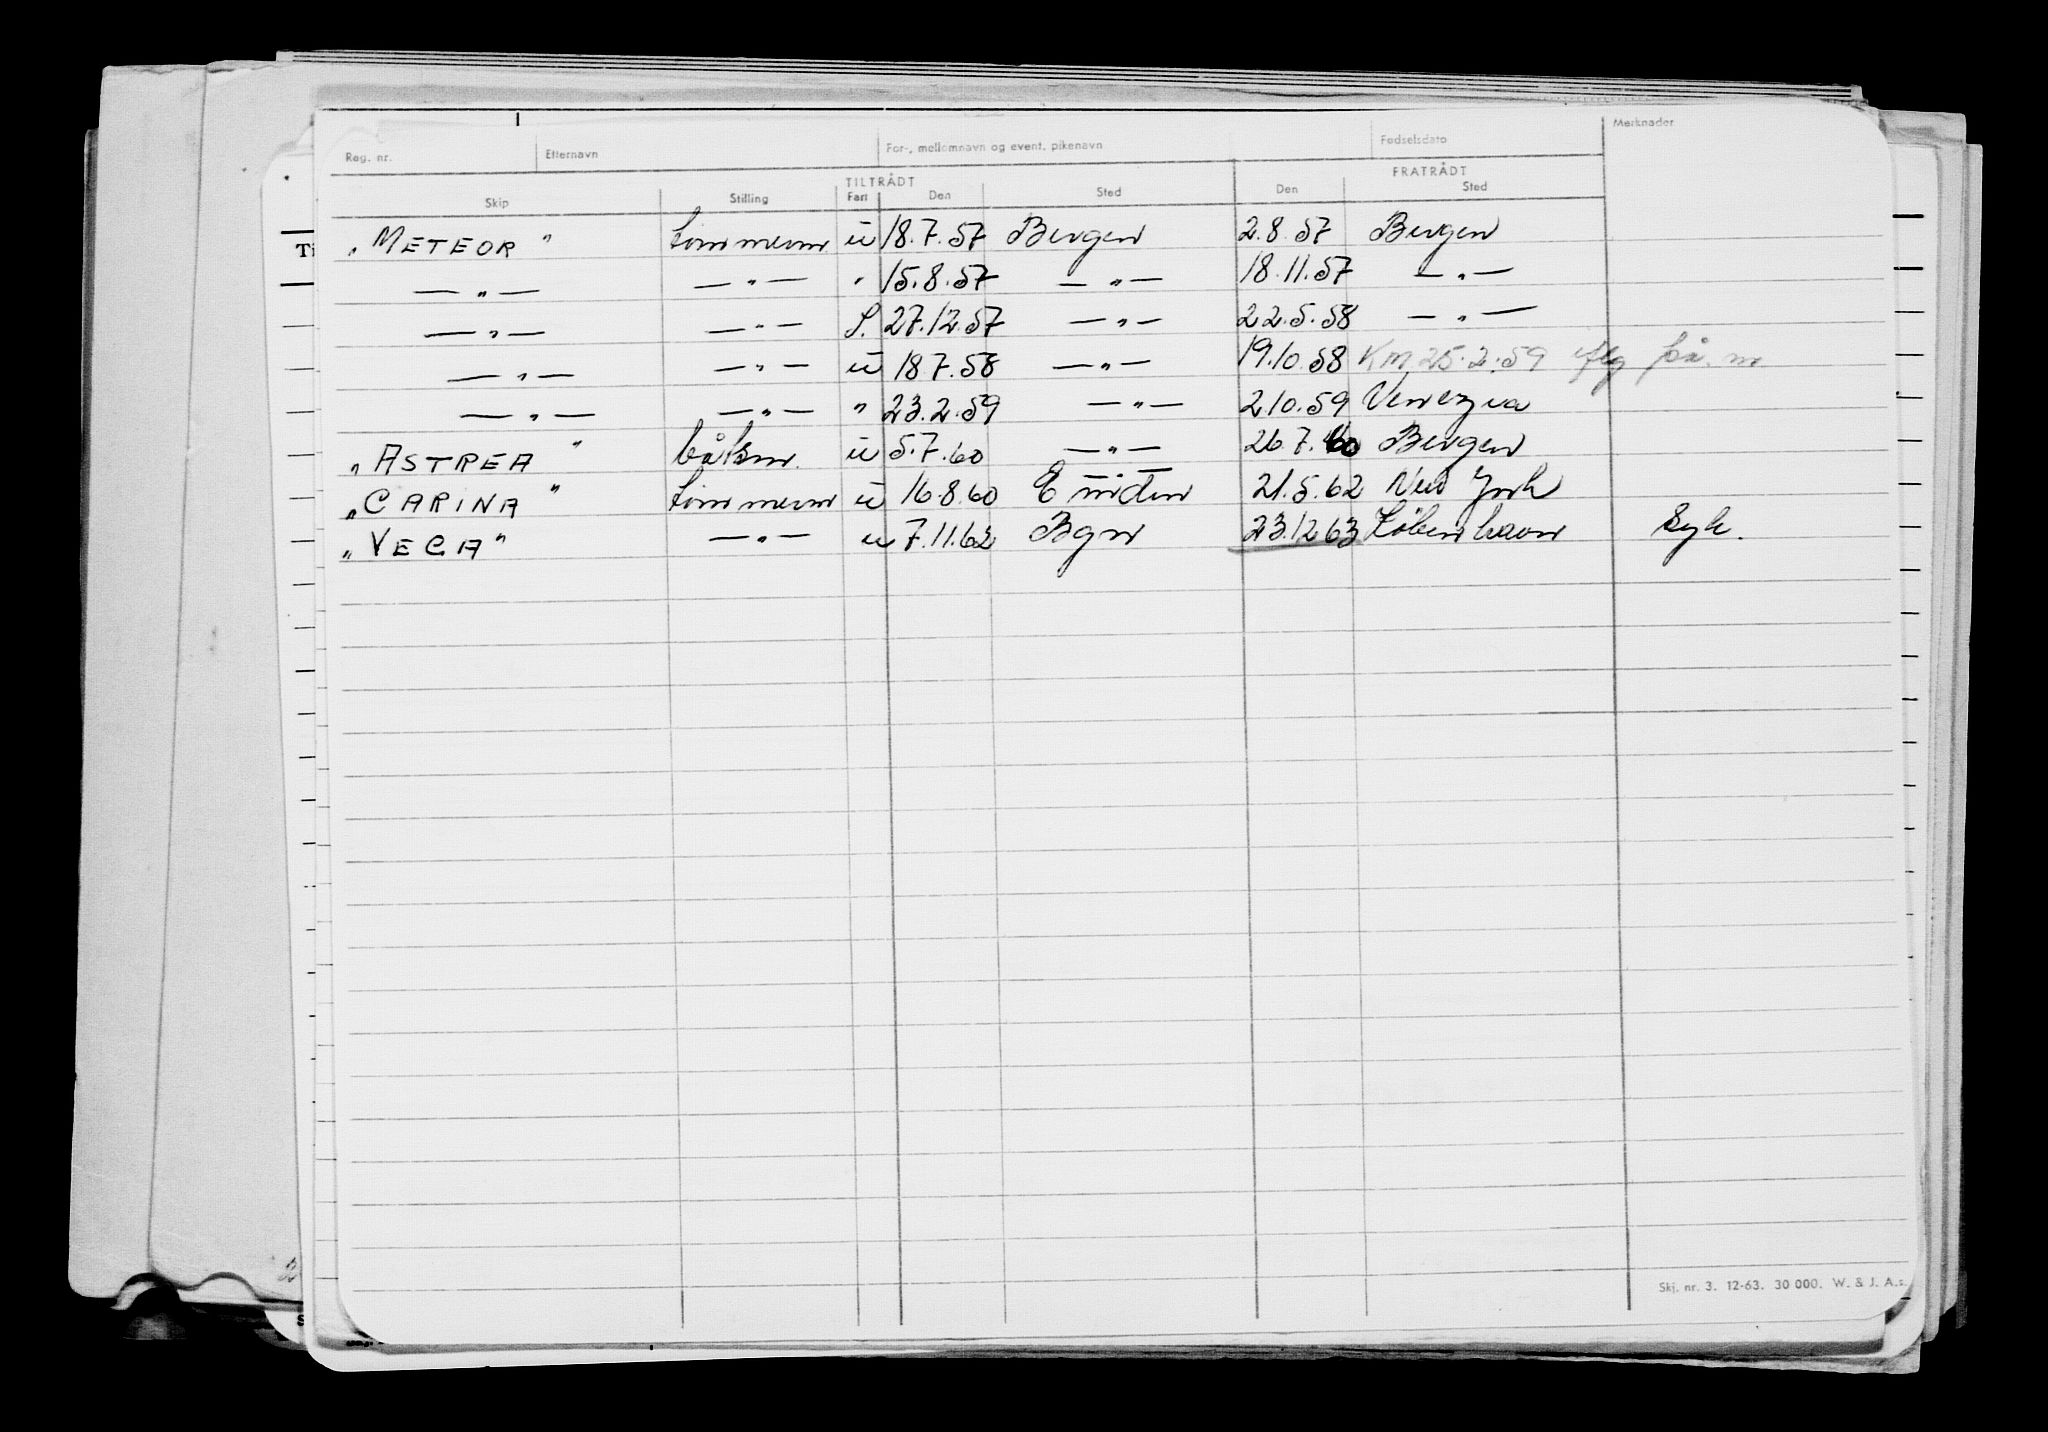 Reg. nr. Etternavn For-, mellomnavn og event. pikenavn Fødselsdato Merknader
TILTRÅDT FRATRÅDT
Skip Stilling Fart Den Sted Den Sted
„METEOR" tømmerm ü 18.7.57 Bergen 2.8.57 Bergen
—"— —"— " 15.8.57 —"— 18.11.57 —"—
—"— —"— S. 27.12.57 —"— 22.5.58 —"—
—"— —"— ü 18.7.58 —"— 19.10.58 KM 25.2.59 på. m
—"— —"— " 23.2.59 —"— 2.10.59 Venezia
„ASTREA" båtsm. ü 5.7.60 —"— 26.7.60 Bergen
„CARINA" tømmerm ü 16.8.60 Emden 21.5.62 New York
„VEGA" —"— u 7.11.62 Bgn 23.12.63 København Syk.
Skj. nr. 3. 12-63. 30 000. W. & J. A.s.